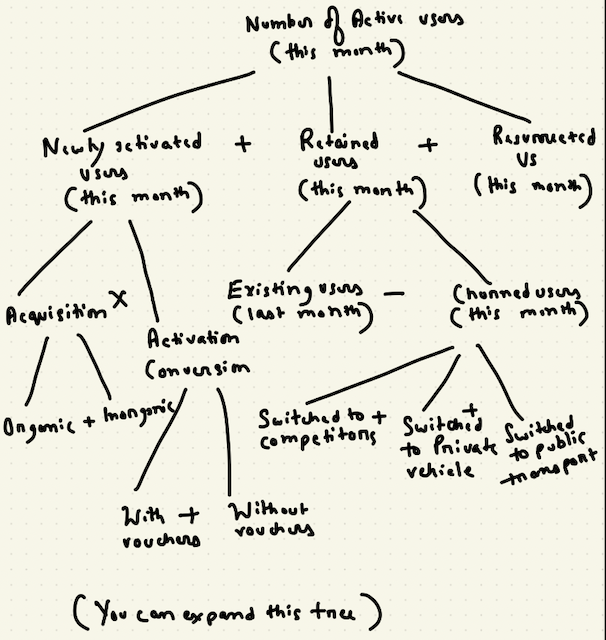 Number of Active users
(this month)
Newly activated
users
(this month)
+
Retained
users
(this month)
+
Resurrected
Us
(this month)
Acquisition X
Activation
Conversion
Existing users
(last month)
-
Churned users
(this month)
Organic + Inorganic
Switched to +
competitors
Switched +
to Private
vehicle
Switched
to public
transport
With +
vouchers
Without
vouchers
(You can expand this tree)